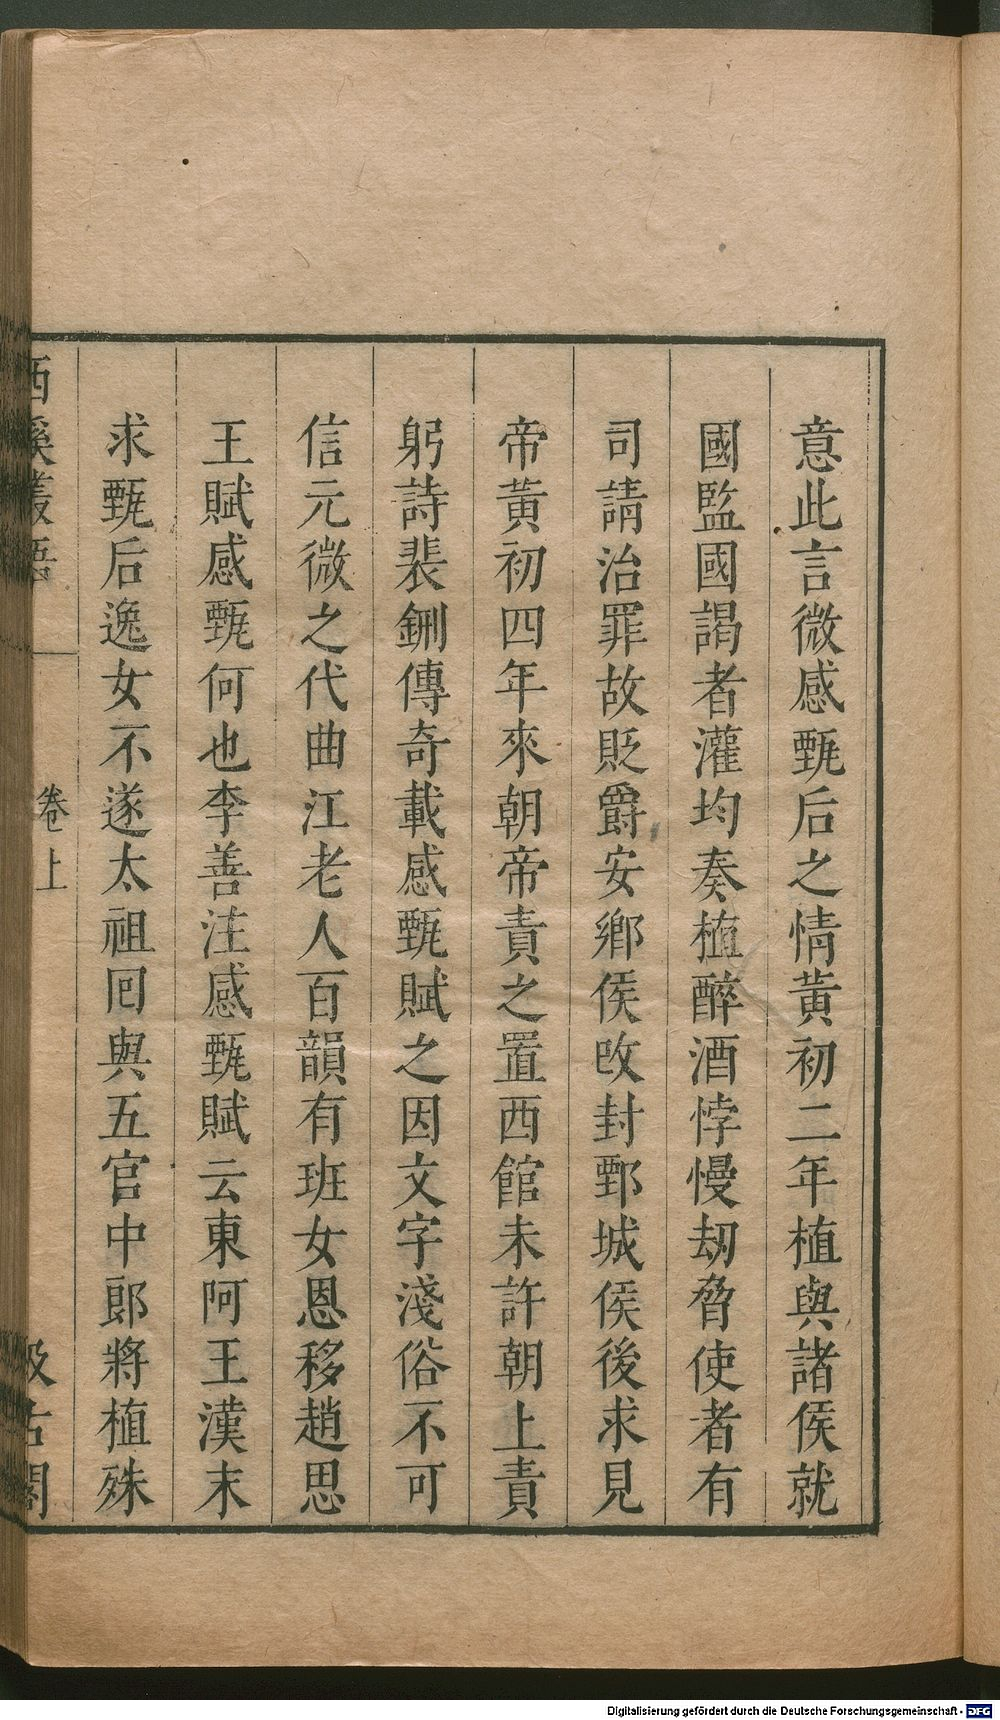 意此言微感甄后之情黃初二年植與諸侯就
國監國謁者灌均奏植醉酒悖慢刼脅使者有
司請治罪故貶爵安鄉侯改封鄄城侯後求見
帝黃初四年來朝帝責之置西館未許朝上責
躬詩裴鉶傳奇載感甄賦之因文字淺俗不可
信元微之代曲江老人百韻有班女恩移趙思
王賦感甄何也李善注感甄賦云東阿王漢末
求甄后逸女不遂太祖回與五官中郎將植殊
西溪叢語 卷上 汲古閣
Digitalisierung gefördert durch die Deutsche Forschungsgemeinschaft - DFG